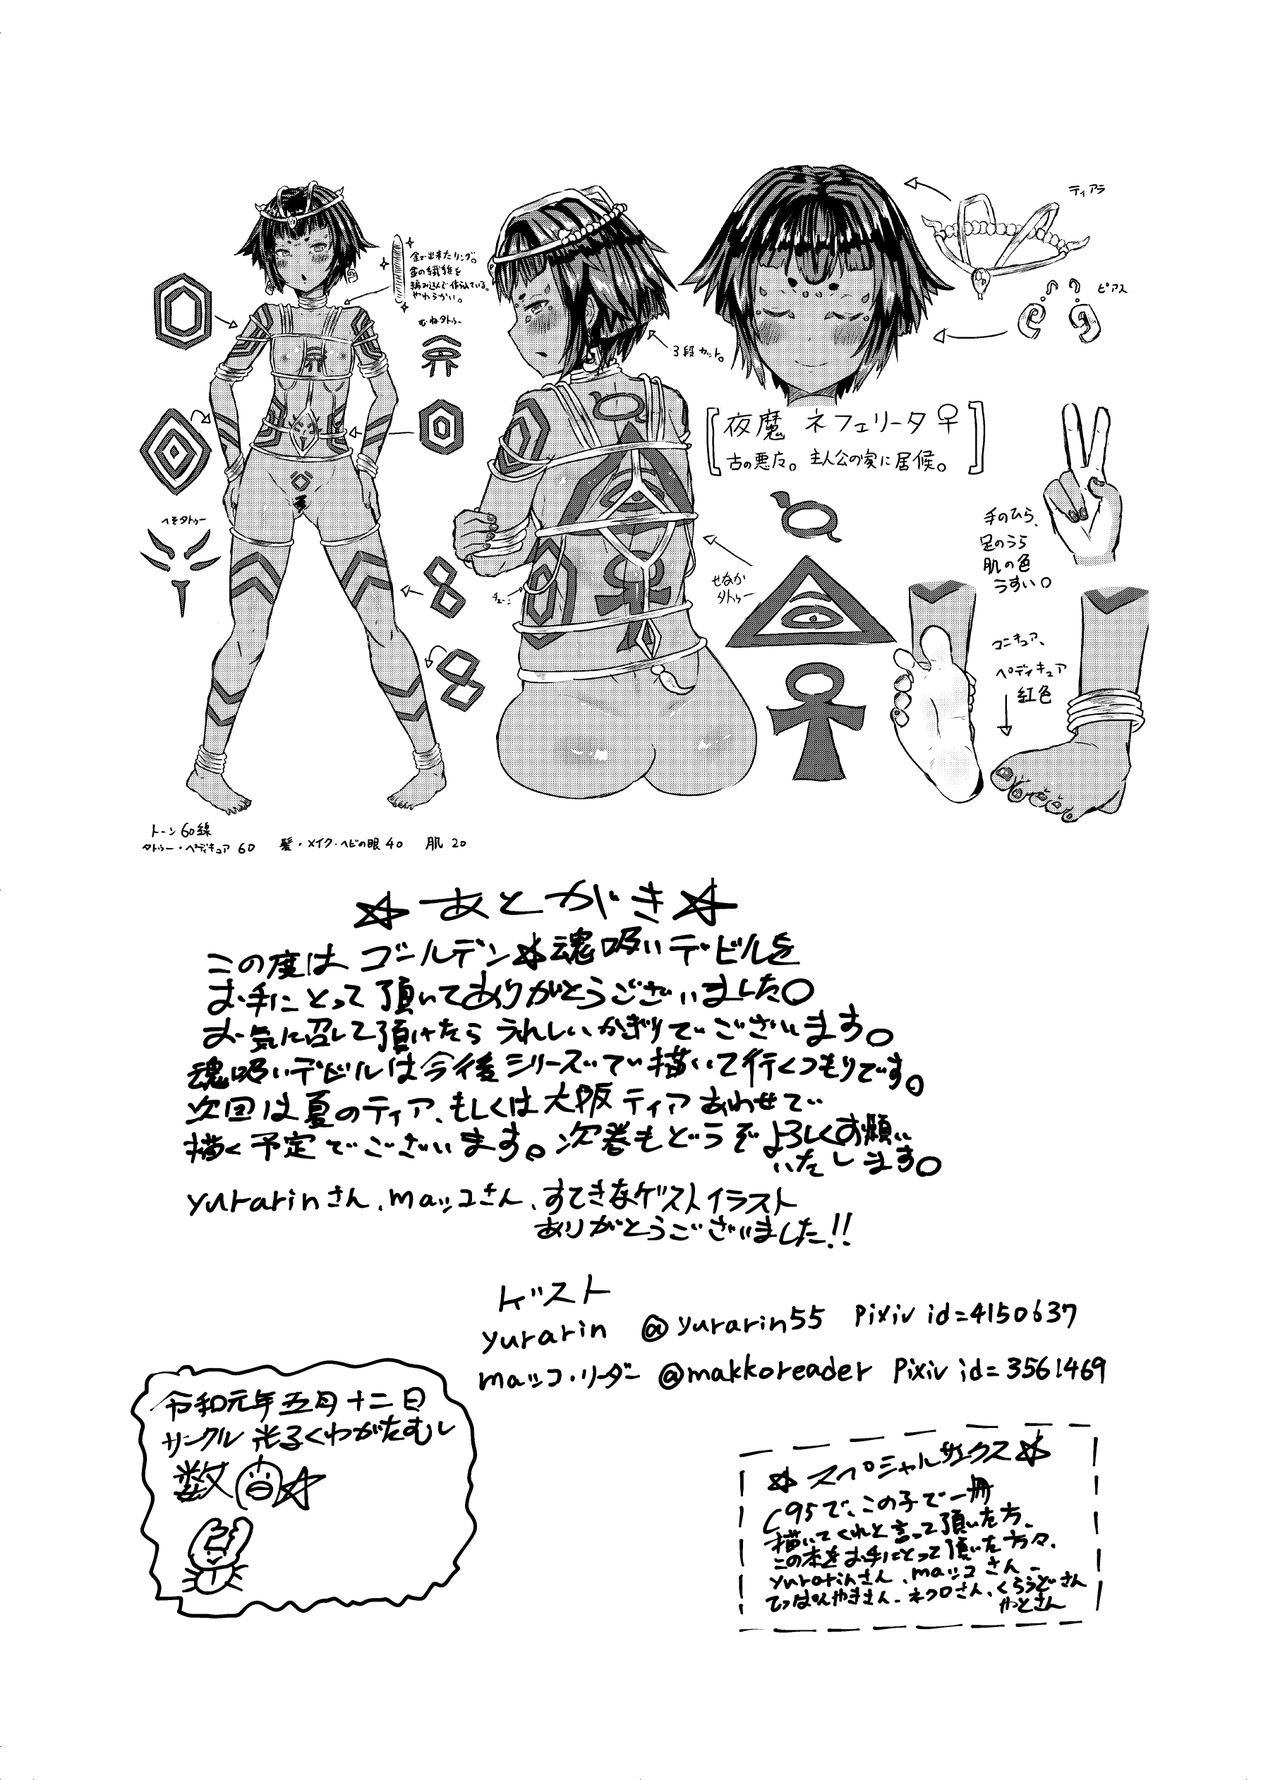 ティアラ
金で出来たリング。
金の繊維を
編み込んで作られている。
やわらかい。
ピアス
むねタトゥー
3段カット。
夜魔 ネフェリータ♀
古の悪魔。主人公の家に居候。
手のひら、
足のうら
肌の色
うすい。
へそタトゥー
せなか
タトゥー
マニキュア、
ペディキュア
紅色
トーン60線
タトゥー・ペディキュア 60 髪・メイク・ヘビの眼 40 肌 20
☆あとがき☆
この度はゴールデン☆魂吸いデビルを
お手にとって頂いてありがとうございました。
お気に召して頂けたらうれしいかぎりでございます。
魂吸いデビルは今後シリーズで描いて行くつもりです。
次回は夏のティア、もしくは大阪ティアあわせで
描く予定でございます。次巻もどうぞよろしくお願い
いたします。
yurarinさん、mαッコさん、すてきなゲストイラスト
ありがとうございました!!
ゲスト
yurarin @yurarin55 Pixiv id=4150637
mαッコ・リーダー @makkoreader Pixiv id=3561469
令和元年五月十二日
サークル 光子くわがたむし
数
☆スペシャルサンクス☆
C95で、この子で一冊
描いてくれと言って頂いた方、
この本をお手にとって頂いた方々、
yurarinさん、mαッコさん、
てっぱんやきさん、ネクロさん、くらうどさん
やとさん